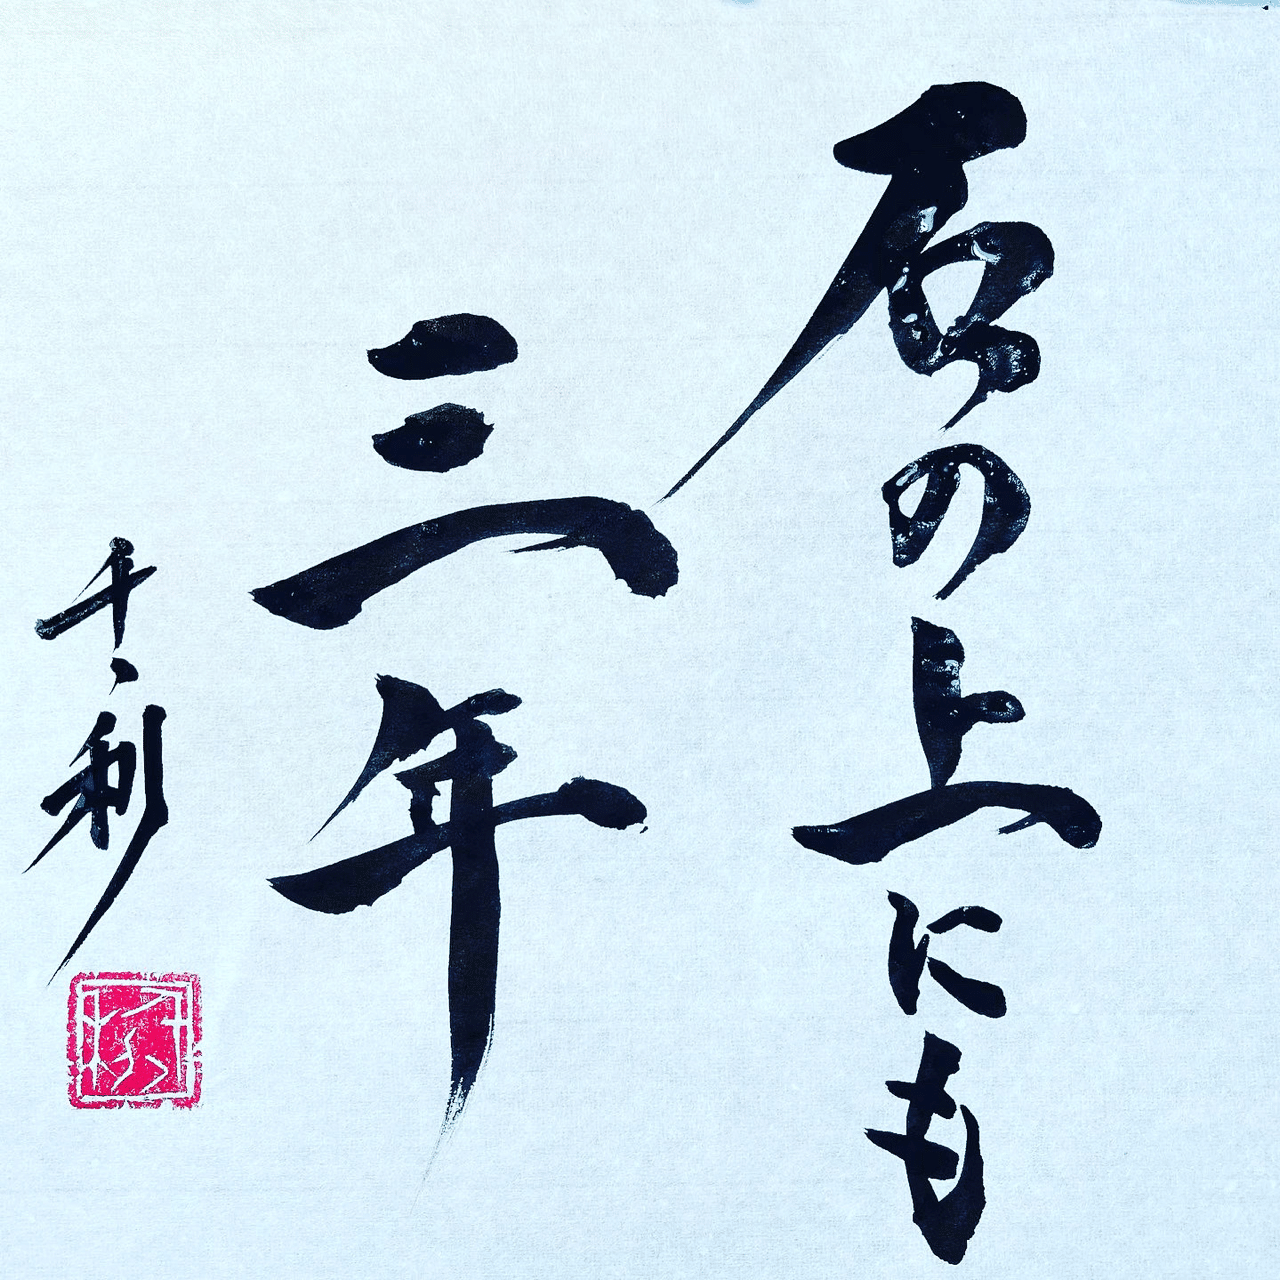 石の上にも
三年
千利